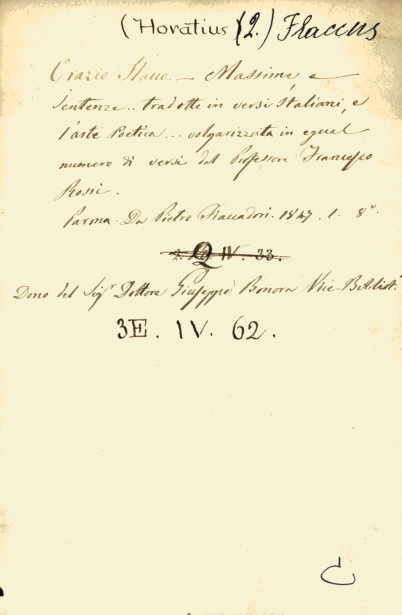 (Horatius (2.) Flaccus
Orazio Flacco. — Massime e
sentenze.. tradotte in versi Italiani, e
l'arte Poetica... volgarizzata in egual
numero di versi dal Professore Francesco
Rossi.
Parma. Da Pietro Fiaccadori. 1847. 1. 8°.
Q IV. 33.
Dono del Sigr Dottore Giuseppe Bonora Vice-Bibliot.
3E. IV. 62.